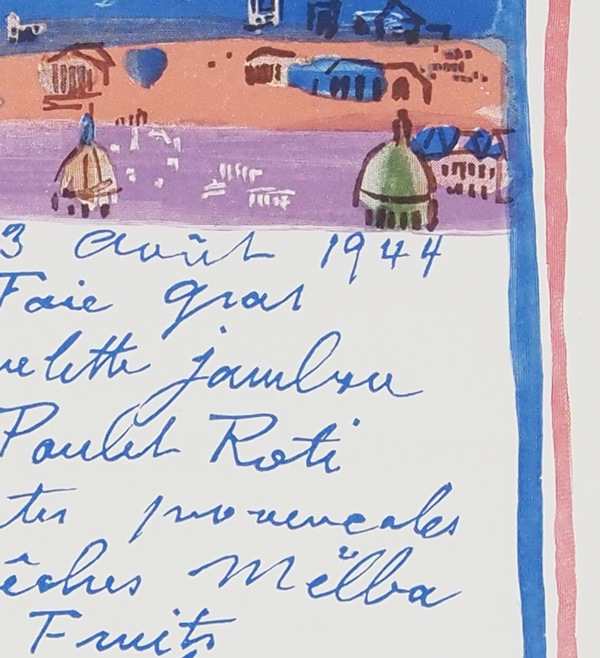 3 Août 1944
Foie gras
elette jambon
Poulet Roti
tes provencales
êches Melba
Fruits